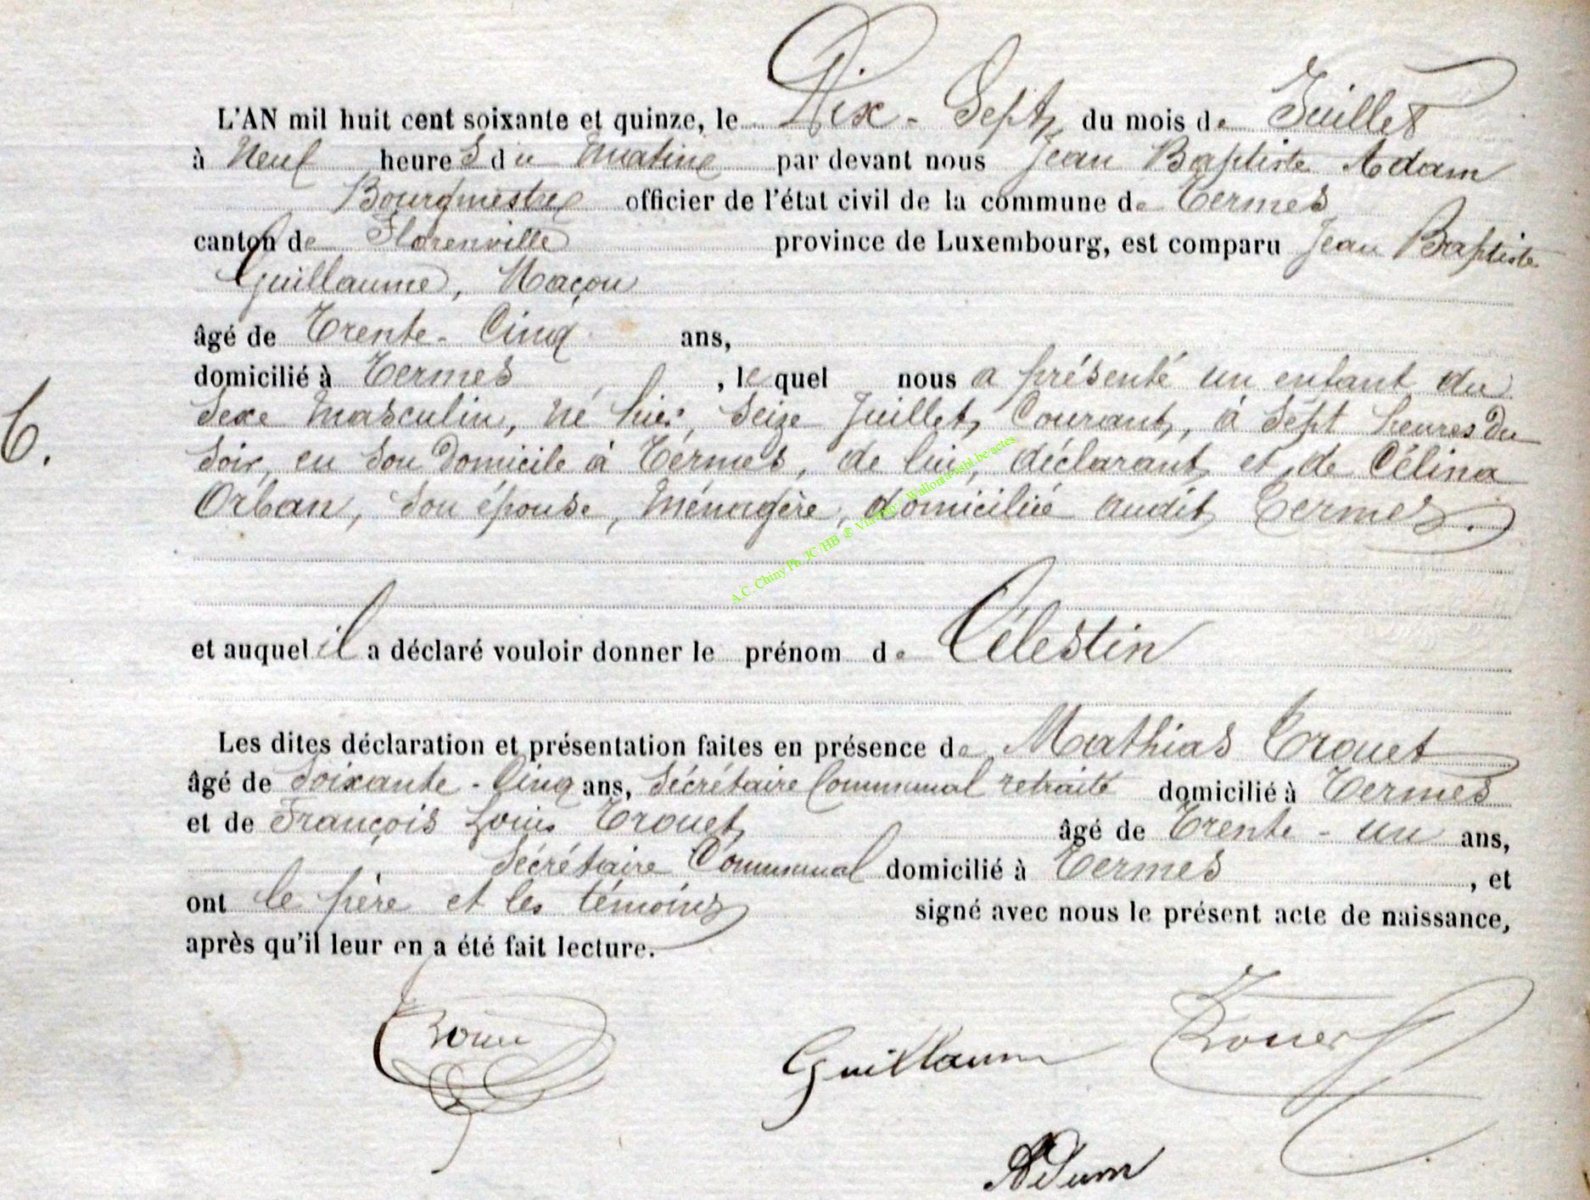 L'AN mil huit cent soixante et quinze, le Dix-Sept, du mois de Juillet
à Neuf heures du matin par devant nous Jean Baptiste Adam
Bourgmestre officier de l'état civil de la commune de Termes
canton de Florenville province de Luxembourg, est comparu Jean Baptiste
Guillaume, Maçon
âgé de Trente-Cinq ans,
domicilié à Termes, lequel nous a présenté un enfant du
sexe masculin, né hier, seize Juillet, Courant, à sept heures du
6.
soir, en son Domicile à Termes, de lui, déclarant, et de Célina
Orban, son épouse, Ménagère, domiciliée audit Termes.
A.C. Chiny
et auquel il a déclaré vouloir donner le prénom de Célestin
Les dites déclaration et présentation faites en présence de Mathias Crouet
âgé de soixante-Cinq ans, Sécrétaire Communal retraité domicilié à Termes
et de François Louis Crouet, âgé de Trente-un ans,
Sécrétaire Communal domicilié à Termes, et
ont le père et les témoins signé avec nous le présent acte de naissance,
après qu'il leur en a été fait lecture.
Guillaume
Adam